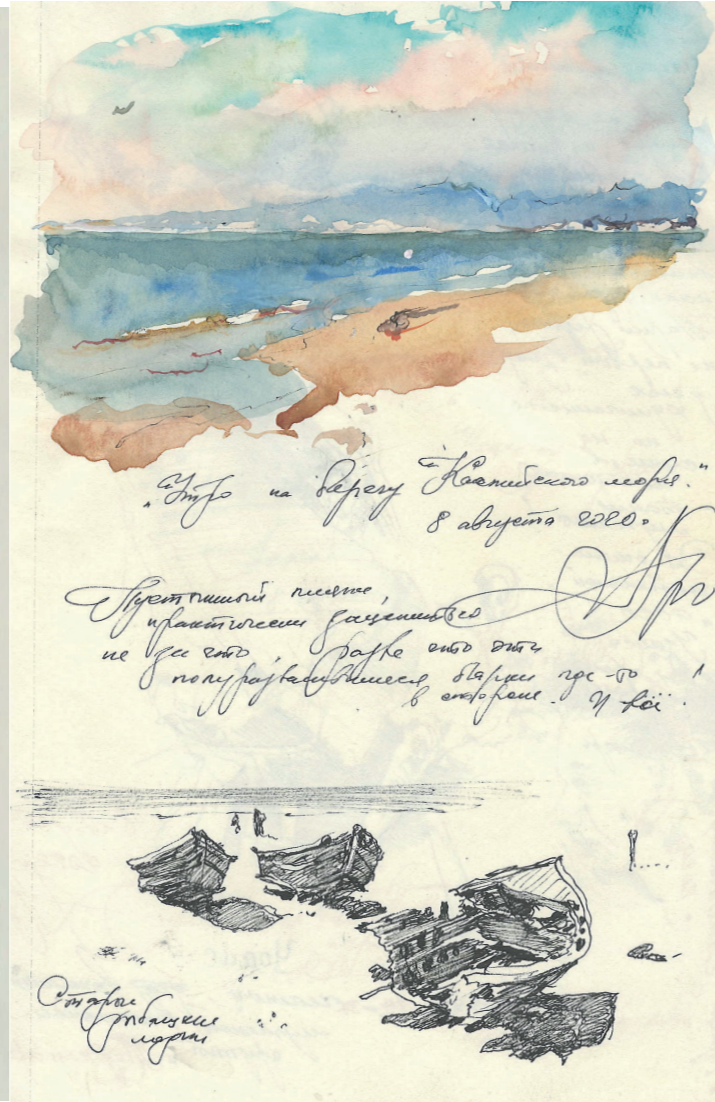 "Утро на берегу "Каспийского моря."
8 августа 2020.
Пустынный пляж,
практически зацепиться
не за что, разве что эти
полуразвалившиеся барки где-то
в стороне. И всё.
Старые
рыбацкие